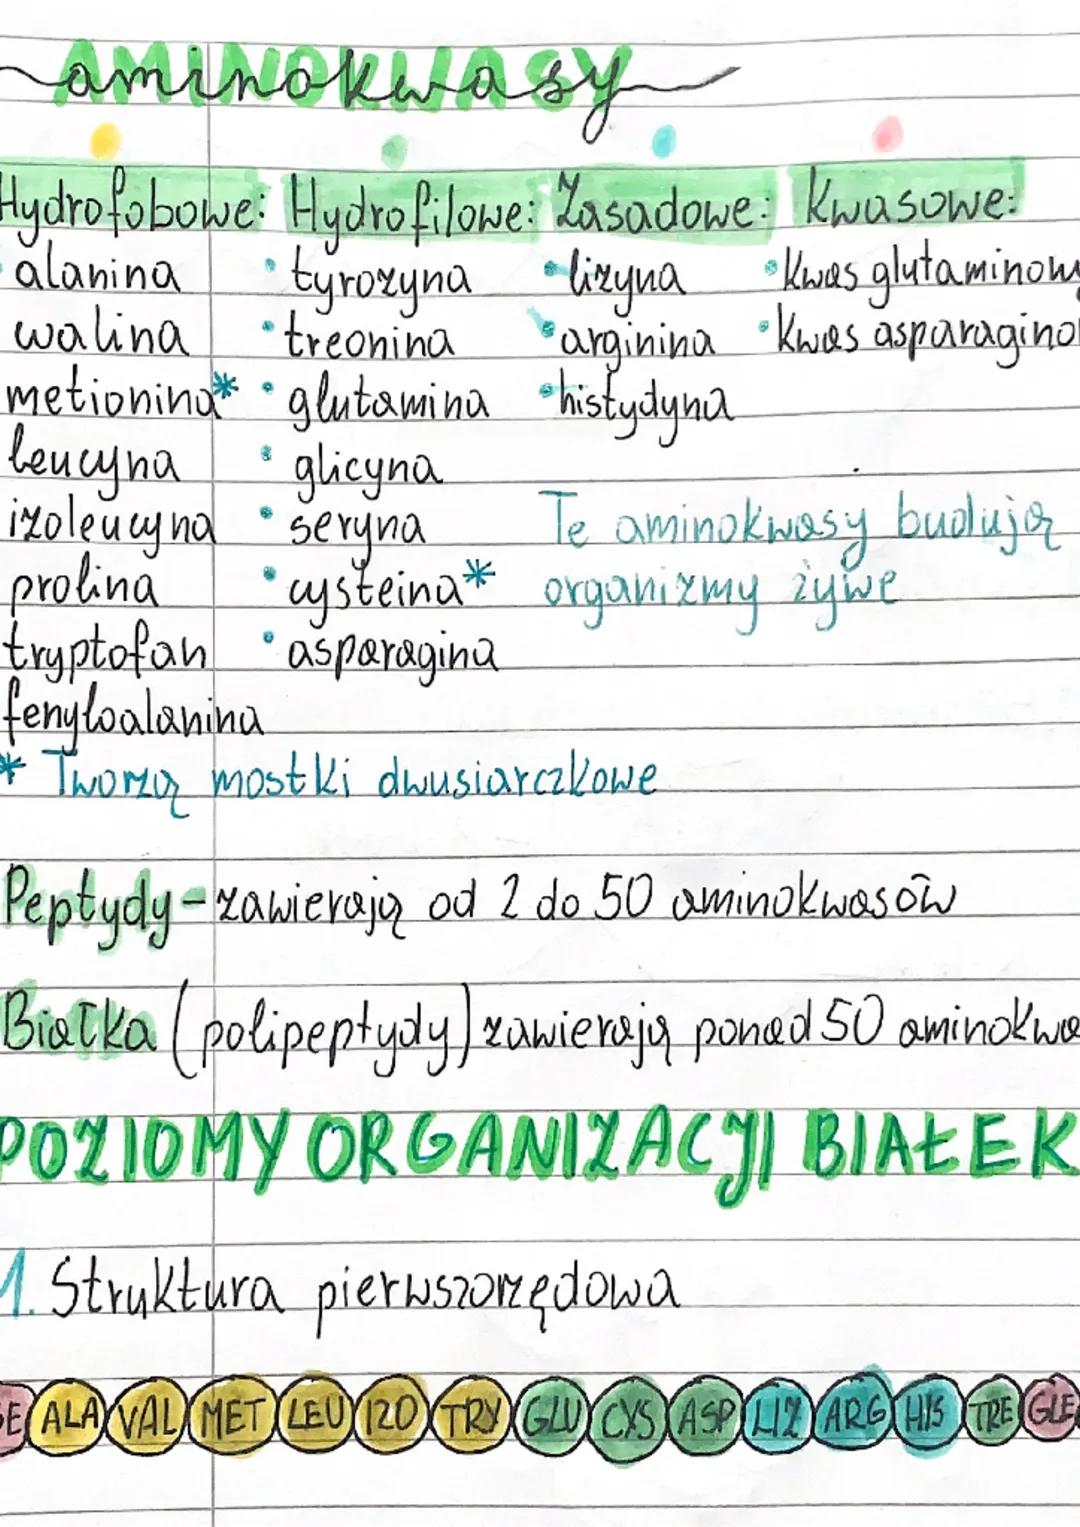 AMINOKWASY
aminokwasy
Hydrofobowe: Hydrofilowe: Zasadowe: Kwasowe:
alanina • tyrozyna • lizyna • Kwas glutaminow
walina • treonina • arginina • Kwas asparagino
metionina* • glutamina • histydyna
leucyna • glicyna
izoleucyna • seryna Te aminokwasy budują
prolina • cysteina* organizmy żywe
tryptofan • asparagina
fenyloalanina
* Tworzą mostki dwusiarczkowe
Peptydy - zawierają od 2 do 50 aminokwasów
Białka (polipeptydy) zawierają ponad 50 aminokwa
POZIOMY ORGANIZACJI BIAŁEK
1. Struktura pierwszorzędowa
SE ALA VAL MET LEU IZO TRY GLU CYS ASP LIZ ARG HIS TRE GLE